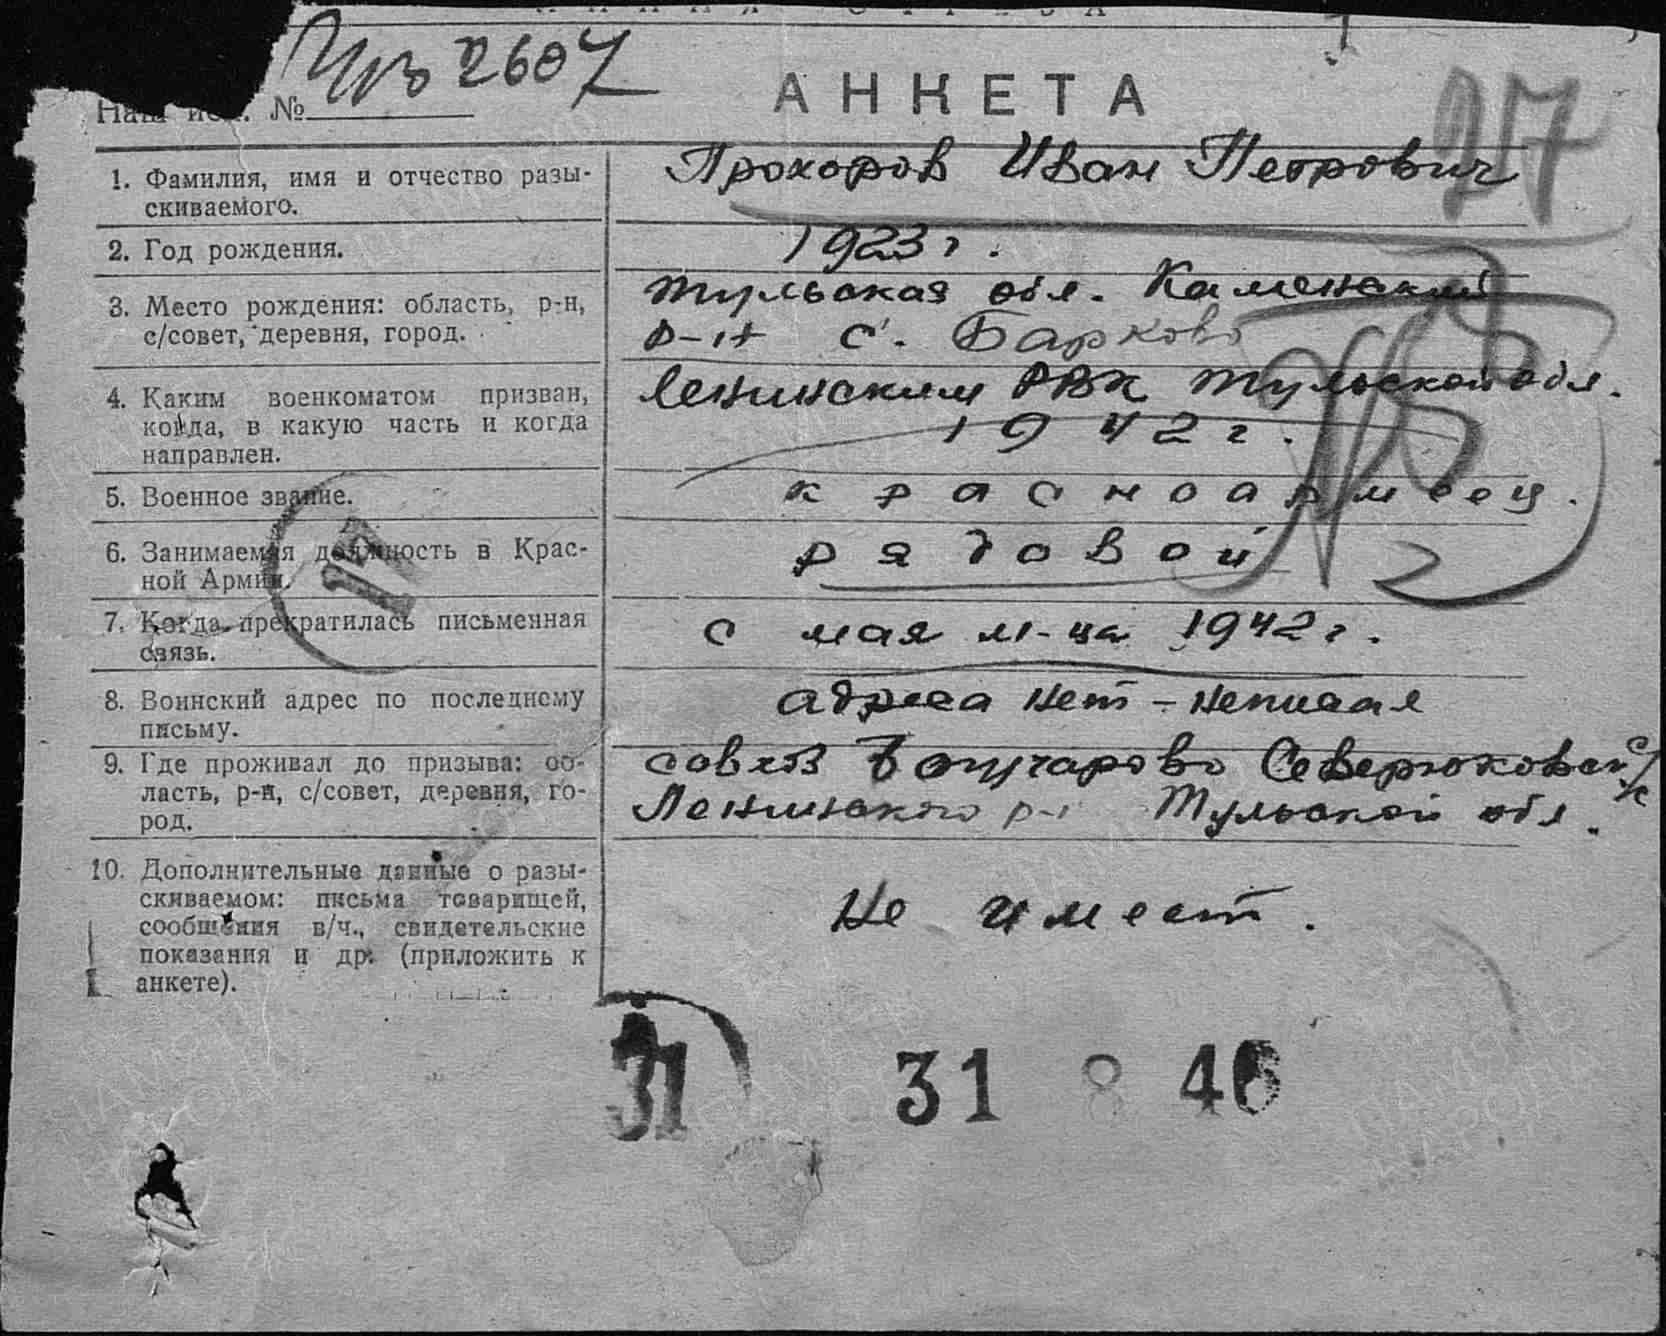 ЛИНИЯ ОТРЕЗА
2604
Наш исх. №
АНКЕТА
27
1. Фамилия, имя и отчество разы-
скиваемого.
Прохоров Иван Петрович
2. Год рождения.
1923 г.
3. Место рождения: область, р-н,
с/совет, деревня, город.
Тульская обл. Каменский
р-н с. Барково
4. Каким военкоматом призван,
когда, в какую часть и когда
направлен.
Ленинским РВК Тульской обл.
1942 г.
5. Военное звание.
красноармеец.
6. Занимаемая должность в Крас-
ной Армии.
рядовой
17
7. Когда прекратилась письменная
связь.
с мая м-ца 1942 г.
8. Воинский адрес по последнему
письму.
адреса нет - неписал
9. Где проживал до призыва: об-
ласть, р-н, с/совет, деревня, го-
род.
совхоз Гончарово Северюковск с/с
Ленинского р-н Тульской обл.
10. Дополнительные данные о разы-
скиваемом: письма товарищей,
сообщения в/ч., свидетельские
показания и др. (приложить к
анкете).
Не имеет.
31
31 8 46